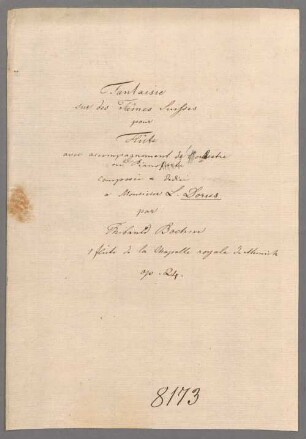 Fantaisie
sur des Thêmes Suisses
pour
Flûte
avec accompagnement de l'Orchestre
ou Pianoforte
composée & dediée
à Monsieur L. Dorus
par
Théobald Boehm
1 flûte de la Chapelle royale de Munich
op. 24.
8173